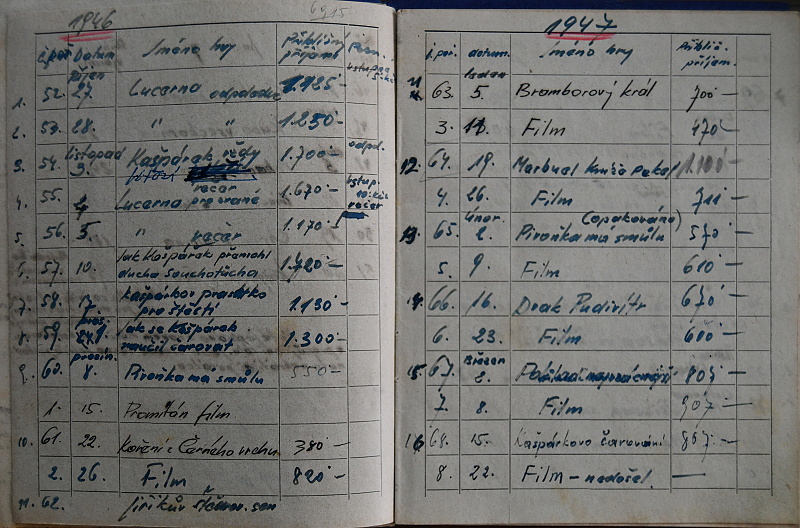 6915
1946
č.poř. Datum Jméno hry Přibližný příjem Pozn.
říjen vstupné
1. 52. 27. Lucerna odpoledne 1.125 —
2. 53. 28. " " 1.250 —
listopad
3. 54. 3. Kašpárek vždy 1.700 — odpol.
večer vstup.
4. 55. Lucerna 1.670 — večer
5. 56. 5. " večer 1.170 —
6. 57. 10. Jak Kašpárek přemohl
ducha Souchotucha
7. 58. 17. Kašpárkov prasátko 1.130 —
pro štěstí
8. 59. 24. Jak se Kašpárek 1.300 —
naučil čarovat
prosin.
9. 60. 8. Pivoňka má smůlu 550 —
1. 15. Promítán film
10. 61. 22. Koření z Černého vrchu 380 —
2. 26. Film 820 —
11. 62. Jiříkův sen
1947
č.poř. datum. Jméno hry Přibliž. příjem.
leden
63. 5. Bramborový král 700 —
3. Film 470 —
12. 64. 19. 1.100 —
4. 26. Film 711 —
únor (opakováno)
13. 65. 2. Pivoňka má smůlu 570 —
5. 9. Film 610 —
14. 66. 16. Drak Pudivítr 670 —
6. 23. Film 600 —
Březen
15. 67. 2. Poklad 803 —
7. 8. Film 907 —
16. 68. 15. Kašpárkovo čarování 867 —
8. 22. Film – nedošel. —